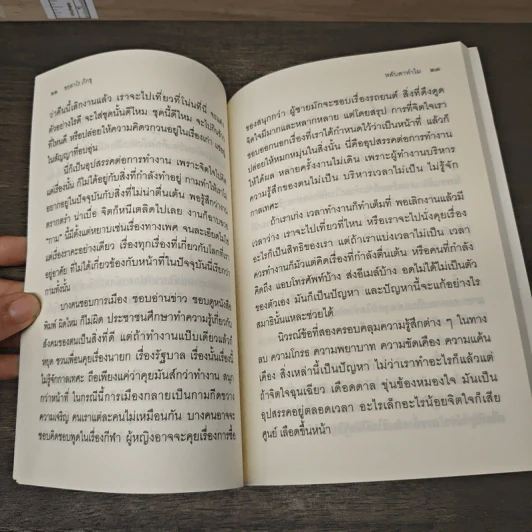 ๒๒ ชยสาโร ภิกขุ
ว่าคืนนี้เลิกงานแล้ว เราจะไปเที่ยวที่โน่นที่นี่ จะแต่ง
ตัวอย่างไรดี จะใส่ชุดนั้นดีไหม ชุดนี้ดีไหม จะไปกินข้าว
ที่ไหนดี หรือปล่อยให้ความคิดวกวนอยู่ในเรื่องเก่า
ในสัญญาที่อบอุ่น
นี่ก็เป็นอุปสรรคต่อการทำงาน เพราะจิตใจไปติด
แต่เรื่องนั้น ก็ไม่ได้อยู่กับสิ่งที่กำลังทำอยู่ กามทำให้เรา
อยากอยู่ในปัจจุบันกับสิ่งที่ไม่น่าตื่นเต้น พอรู้สึกว่างาน
ตรากตรำ น่าเบื่อ จิตก็หนีเตลิดไปเลย งานก็
“กาม” นี้มีตั้งแต่หยาบเช่นเรื่องทางเพศ จนละเอียด
แต่เรื่องราคะอย่างเดียว เรื่องทุกเรื่องที่เกี่ยวกับโลกที่เรา
อยู่อาศัย ที่ไม่ได้เกี่ยวข้องกับหน้าที่ในปัจจุบันนี้เรียกว่า
กามทั้งนั้น
บางคนชอบการเมือง ชอบอ่านข่าว ชอบดูหนังสือ
พิมพ์ ผิดไหม ก็ไม่ผิด ประชาชนศึกษาทำความรู้เกี่ยวกับ
สังคมของตนเป็นสิ่งที่ดี แต่ถ้าทำงานแป๊บเดียวแล้วก็
หยุด ชวนเพื่อนคุยเรื่องนายก เรื่องรัฐบาล เรื่องนั้นเรื่องนี้
ไม่รู้จักกาลเทศะ ถือเพียงแค่ว่าคุยมันส์กว่าทำงาน สนุก
กว่าหน้าที่ ในกรณีนี้การเมืองกลายเป็นกามกีดขวาง
ความเจริญ คนเราแต่ละคนไม่เหมือนกัน บางคนอาจจะ
ชอบคิดชอบพูดในเรื่องกีฬา ผู้หญิงอาจจะคุยเรื่องการซื้อ
หลับตาทำไม ๒๓
ของสนุกกว่า ผู้ชายมักจะชอบเรื่องรถยนต์ สิ่งที่ดึงดูด
จิตใจมีมากและหลากหลาย แต่โดยสรุป การที่จิตใจเรา
ชอบออกนอกเรื่องที่เราได้กำหนดไว้ว่าเป็นหน้าที่ แล้วก็
ปล่อยให้หมกหมุ่นในสิ่งนั้น นี่คืออุปสรรคต่อการทำงาน
ให้ได้ผล หลายครั้งงานไม่เดิน เพราะผู้ทำงานบริหาร
ความรู้สึกของตนไม่เป็น บริหารเวลาไม่เป็น ไม่รู้จัก
กาลเทศะ
ถ้าเราเก่ง เวลาทำงานก็ทำเต็มที่ พอเลิกงานแล้วมี
เวลาว่าง เราจะไปเที่ยวที่ไหน หรือเราจะไปนั่งคุยเรื่อง
อะไรก็เป็นสิทธิของเรา แต่ถ้าเราแบ่งเวลาไม่เป็น เวลา
ควรทำงานก็มัวแต่คิดเรื่องที่กำลังตื่นเต้น หรือคนที่กำลัง
คิดถึง แอบโทรศัพท์บ้าง ส่งอีเมล์บ้าง อดไม่ได้ไม่เป็นตัว
ของตัวเอง มันก็เป็นปัญหา และปัญหานี้จะแก้อย่างไร
สมาธินั้นแหละช่วยได้
นิวรณ์ข้อที่สองครอบคลุมความรู้สึกต่าง ๆ ในทาง
ลบ ความโกรธ ความพยาบาท ความขัดเคือง ความแค้น
เคือง สิ่งเหล่านี้เป็นปัญหา ไม่ว่าเราทำอะไรก็แล้วแต่
ถ้าจิตใจฉุนเฉียว เดือดดาล ขุ่นข้องหมองใจ มันเป็น
อุปสรรคอยู่ตลอดเวลา อะไรเล็กอะไรน้อยจิตใจก็เสีย
ศูนย์ เลือดขึ้นหน้า